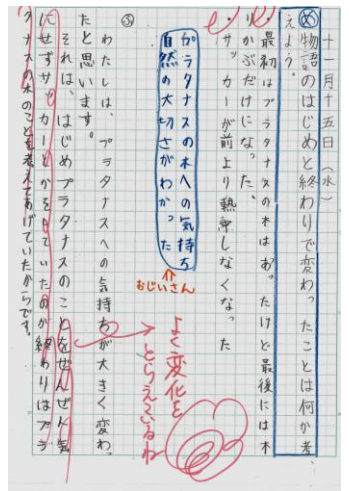 十一月十五日（水）
め 物語のはじめと終わりで変わったことは何か考
えよう。
・最初はプラタナスの木はあったけど最後には木
りかぶだけになった。
・サッカーが前より熱中しなくなった
プラタナスの木への気持ち
自然の大切さがわかった
おじいさん
わたしは、プラタナスへの気持ちが大きく変わっ
たと思います。
それは、はじめプラタナスのことをぜんぜん気
にせずサッカーとかをしていたのが終わりはプラ
タナスの木のことを考えてあげていたからです。
よく変化を
とらえているね